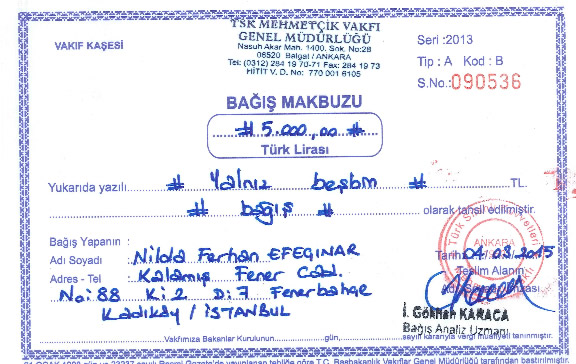 TSK MEHMETÇİK VAKFI
GENEL MÜDÜRLÜĞÜ
Nasuh Akar Mah. 1400. Sok. No:28
06520 Balgat / ANKARA
Tel: (0312) 284 19 70-71 Fax: 284 19 73
HİTİT V. D. No: 770 001 6105
VAKIF KAŞESİ
Seri : 2013
Tip : A Kod : B
S.No.: 090536
BAĞIŞ MAKBUZU
# 5.000,00 #
Türk Lirası
Yukarıda yazılı # Yalnız beşbin # TL.
# bağış # olarak tahsil edilmiştir.
Bağış Yapanın :
Adı Soyadı : Nilda Ferhan EFEÇINAR
Adres - Tel : Kalamış Fener Cad.
No: 88 K: 2 D: 7 Fenerbahçe
Kadıköy / İSTANBUL
ANKARA
Tarih: 04.08.2015
Teslim Alanın
İ. Gökhan KARACA
Bağış Analiz Uzmanı
Vakfımıza Bakanlar Kurulunun gün, sayılı kararıyla vergi muafiyeti tanınmıştır.